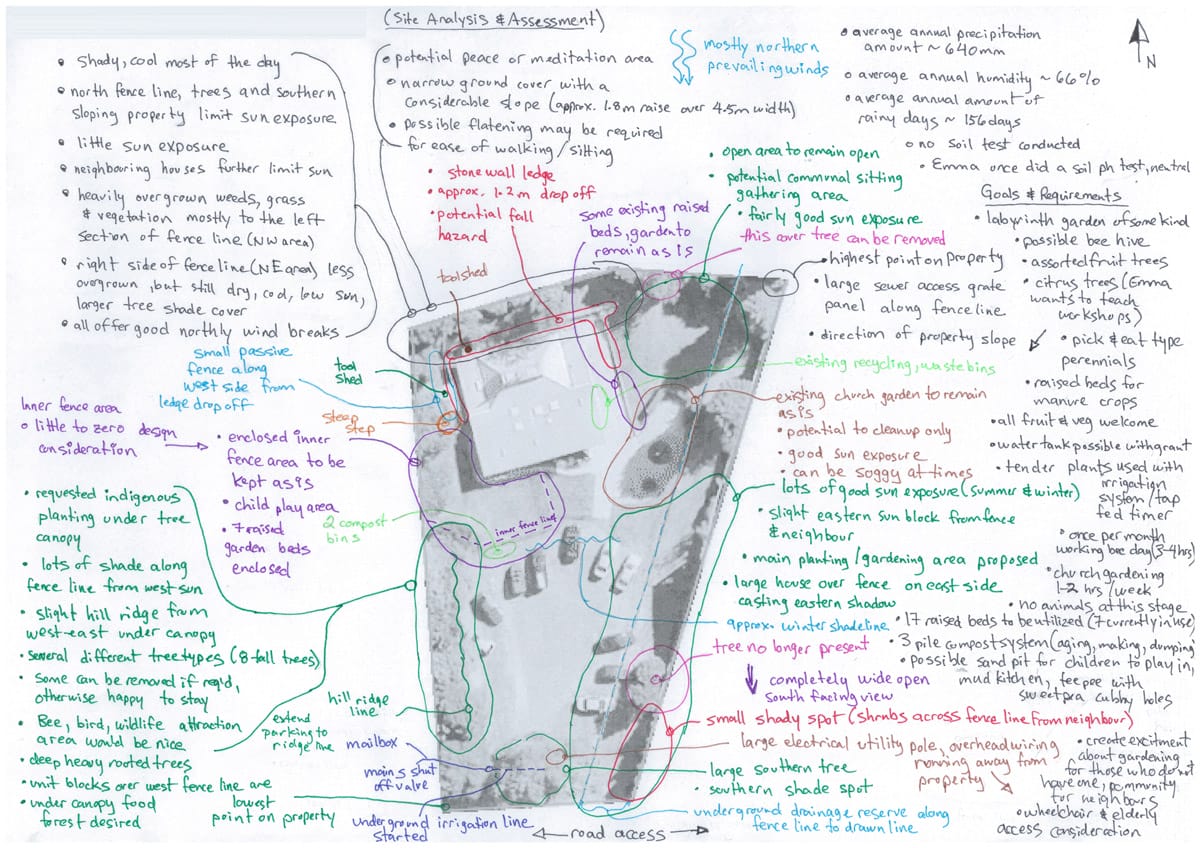 (Site Analysis & Assessment)
• Shady, cool most of the day
• north fence line, trees and southern
sloping property limit sun exposure
• little sun exposure
• neighbouring houses further limit sun
• heavily overgrown weeds, grass
& vegetation mostly to the left
section of fence line (NW area)
• right side of fence line (NE area) less
overgrown, but still dry, cool, low sun,
larger tree shade cover
• all offer good northly wind breaks
• potential peace or meditation area
• narrow ground cover with a
considerable slope (approx. 1.8m raise over 4.5m width)
• possible flatening may be required
for ease of walking / sitting
mostly northern
prevailing winds
• average annual precipitation
amount ~ 640mm
• average annual humidity ~ 66%
• average annual amount of
rainy days ~ 156 days
• no soil test conducted
• Emma once did a soil ph test, neutral
N
• stone wall ledge
• approx. 1.2m drop off
• potential fall
hazard
some existing raised
beds, garden to
remain as is
• open area to remain open
• potential communal sitting
gathering area
• fairly good sun exposure
this cover tree can be removed
• highest point on property
• large sewer access grate
panel along fence line
• direction of property slope
toolshed
small passive
fence along
west side from
ledge drop off
tool
shed
steep
step
existing recycling, waste bins
existing church garden to remain
as is
• potential to cleanup only
• good sun exposure
• can be soggy at times
Inner fence area
• little to zero design
consideration
• enclosed inner
fence area to be
kept as is
• child play area
• 7 raised
garden beds
enclosed
2 compost
bins
inner fence line
• requested indigenous
planting under tree
canopy
• lots of shade along
fence line from west sun
• slight hill ridge from
west-east under canopy
• several different tree types (8 tall trees)
• Some can be removed if req'd,
otherwise happy to stay
• Bee, bird, wildlife attraction
area would be nice
• deep heavy rooted trees
• unit blocks over west fence line are
• under canopy food
forest desired
lowest
point on property
extend
parking to
ridge line
hill ridge
line
mailbox
mains shut
off valve
underground irrigation line
started
road access
lots of good sun exposure (summer & winter)
• slight eastern sun block from fence
& neighbour
• main planting / gardening area proposed
• large house over fence on east side
casting eastern shadow
approx. winter shadeline
tree no longer present
completely wide open
south facing view
small shady spot (shrubs across fence line from neighbour)
large electrical utility pole, overhead wiring
running away from
property
• large southern tree
• southern shade spot
underground drainage reserve along
fence line to drawn line
Goals & Requirements
• labyrinth garden of some kind
• possible bee hive
• assorted fruit trees
• citrus trees (Emma
wants to teach
workshops)
• pick & eat type
perennials
• raised beds for
manure crops
• all fruit & veg welcome
• water tank possible with grant
• tender plants used with
irrigation
system / tap
fed timer
• once per month
working bee day (3-4 hrs)
• church gardening
1-2 hrs / week
• no animals at this stage
• 17 raised beds to be utilized (7 currently in use)
• 3 pile compost system (aging, making, dumping
• possible sand pit for children to play in,
mud kitchen, teepee with
sweetpea cubby holes
• create excitment
about gardening
for those who do not
have one, community
for neighbours
• wheelchair & elderly
access consideration